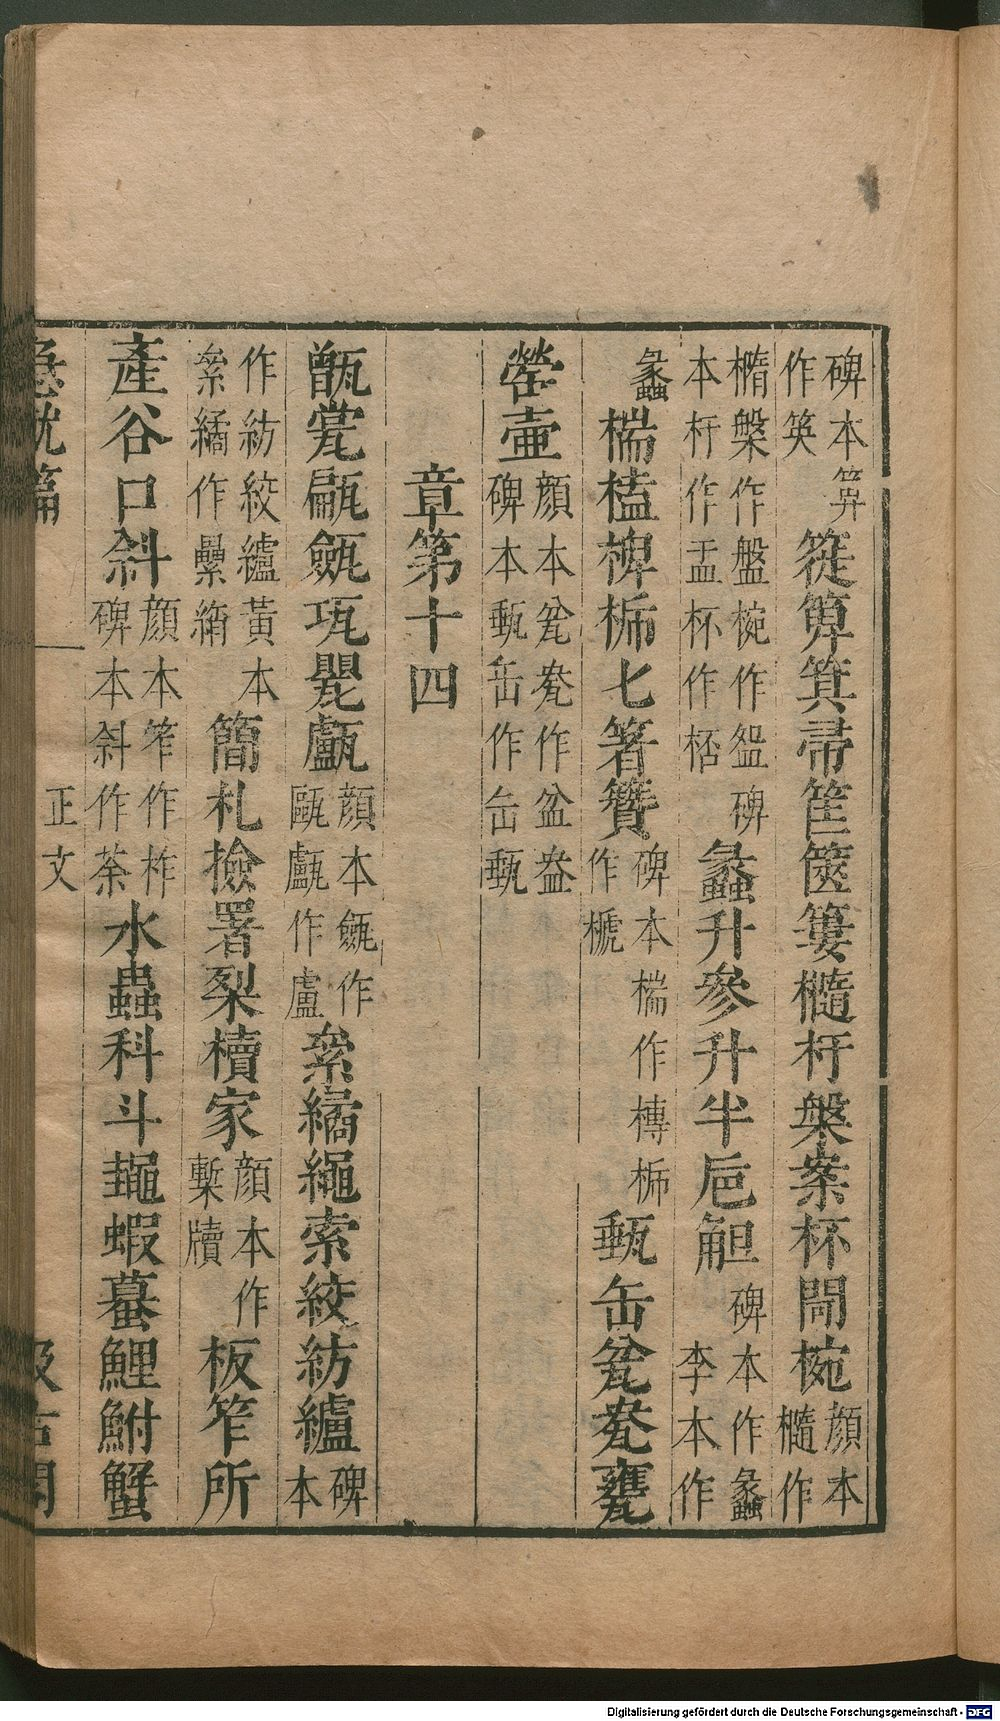 碑本箅作筴簁箄箕帚筐篋簍橢杅槃案杯閜椀顏本橢作
橢槃作盤椀作盌碑本杅作盂杯作桮蠡升參升半巵觛碑本作蠡李本作
蠡 椯榼椑㭒匕箸籫碑本椯作槫㭒作榹甀缶瓮㼜甕
罃壷顏本瓮㼜作盆盎碑本甀缶作缶甀
章第十四
甑甍甂甌㼛甖甗顏本作甌甗作盧絫繘繩索絞紡纑碑本
作紡絞纑黃本絫繘作纍簡札檢署椠櫝家顏本作槧牘板笮所
產谷口斜顏本笮作柞碑本斜作茶水蟲科斗鼃蝦蟇鯉鮒蟹
急就篇 正文 一 汲古閣
Digitalisierung gefördert durch die Deutsche Forschungsgemeinschaft - DFG